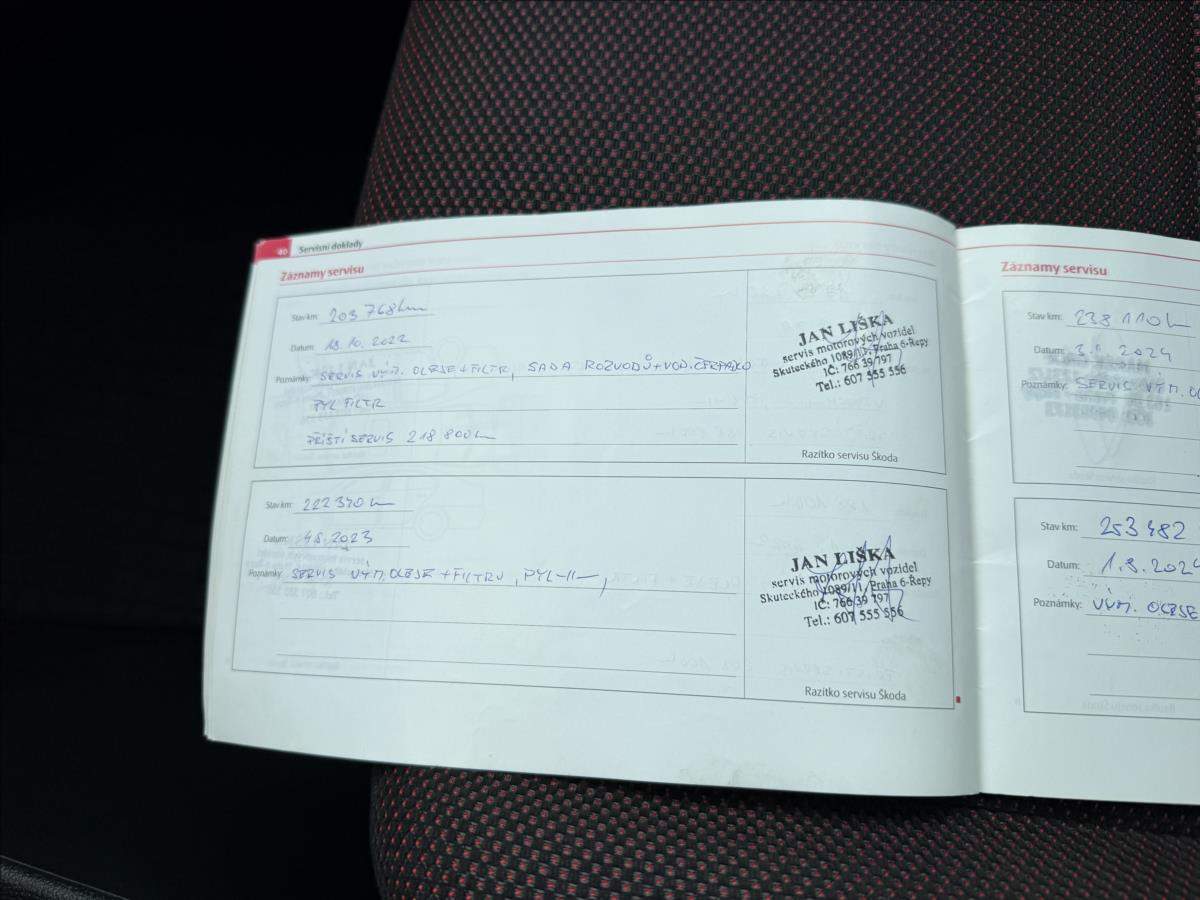 40 Servisní doklady
Záznamy servisu
Stav km: 203 768 km
Datum: 18.10.2022
Poznámky: SERVIS VÝM. OLEJE + FILTR, SADA ROZVODŮ + VOD. ČERPADLO
PYL FILTR
PŘÍŠTÍ SERVIS 218 800 km
JAN LIŠKA
servis motorových vozidel
Skuteckého 1089/11, Praha 6-Řepy
IČ: 766 39 797
Tel.: 607 555 556
Razítko servisu Škoda
Stav km: 222 340 km
Datum: 2023
Poznámky: SERVIS VÝM. OLEJE + FILTRU, PYL -II-
JAN LIŠKA
servis motorových vozidel
Skuteckého 1089/11, Praha 6-Řepy
IČ: 766 39 797
Tel.: 607 555 556
Razítko servisu Škoda
Záznamy servisu
Stav km: 238 110 km
Datum: 2024
Poznámky: SERVIS VÝM. OL
Stav km: 253 482
Datum: 2024
Poznámky: VÝM. OLEJE